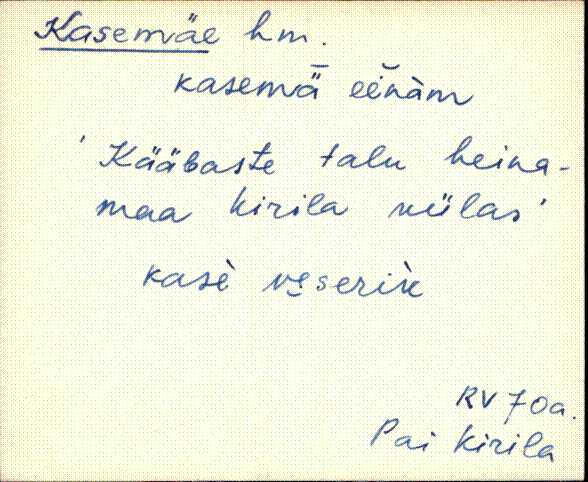 Kasemäe hm.
kasemǟ eĕnàm
' Kääbaste talu heina-
maa kirila külas'
kasè veserik
RV 70a.
Pai kirila